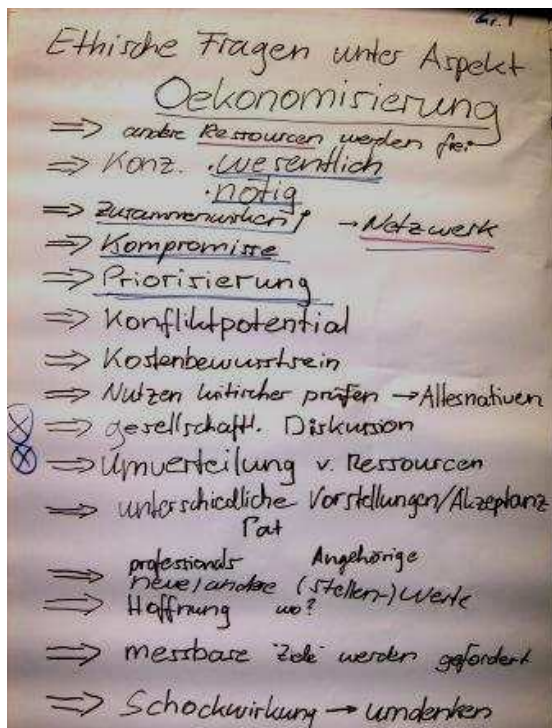 Gr. 1
Ethische Fragen unter Aspekt
Oekonomisierung
⇒ andere Ressourcen werden frei
⇒ Konz. • wesentlich
• nötig
⇒ Zusammenwirken! → Netzwerk
⇒ Kompromisse
⇒ Priorisierung
⇒ Konfliktpotential
⇒ Kostenbewusstsein
⇒ Nutzen kritischer prüfen → Alternativen
⇒ gesellschaftl. Diskussion
⇒ Umverteilung v. Ressourcen
⇒ unterschiedliche Vorstellungen/Akzeptanz
Pat
professionals Angehörige
⇒ neue/andere (Stellen-)Werte
⇒ Hoffnung wo?
⇒ messbare Ziele werden gefordert
⇒ Schockwirkung → umdenken